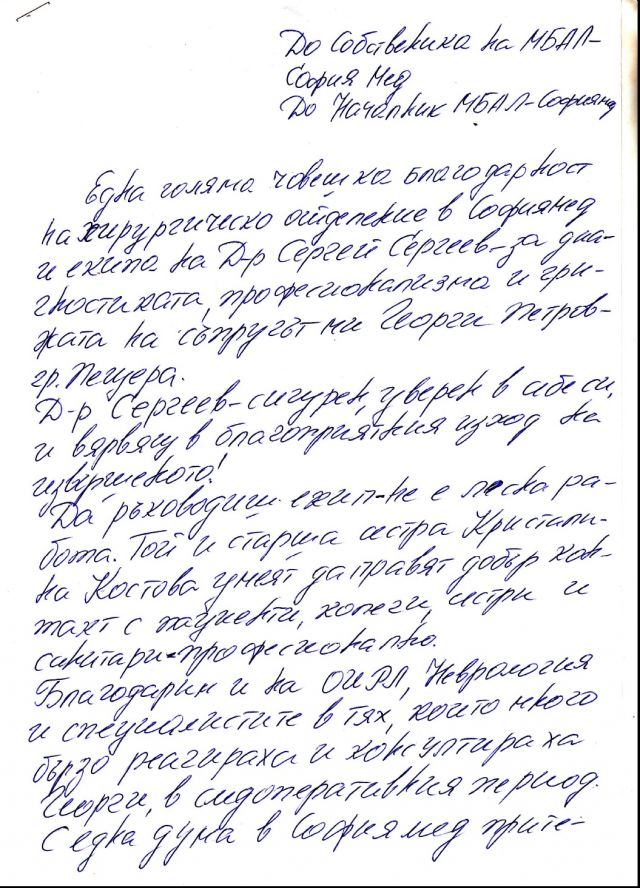 До Собственика на МБАЛ-
София Мед
До Началник МБАЛ-Софиямед
Една голяма човешка благодарност
на хирургическо отделение в Софиямед
и екипа на Д-р Сергей Сергеев-за диа-
гностиката, професионализма и гри-
жата на съпругът ми Георги Петров-
гр. Пещера.
Д-р Сергеев-сигурен, уверен в себе си,
и вярващ в благоприятния изход на
извършеното!
Да ръководиш екип-не е лесна ра-
бота. Той и старша сестра Кристали-
на Костова умеят да правят добър кон-
такт с пациенти, колеги, сестри и
санитари-професионално.
Благодарим и на ОИРЛ, Неврология
и специалистите в тях, които много
бързо реагираха и консултираха
Георги, в следоперативния период.
С една дума в Софиямед прите-